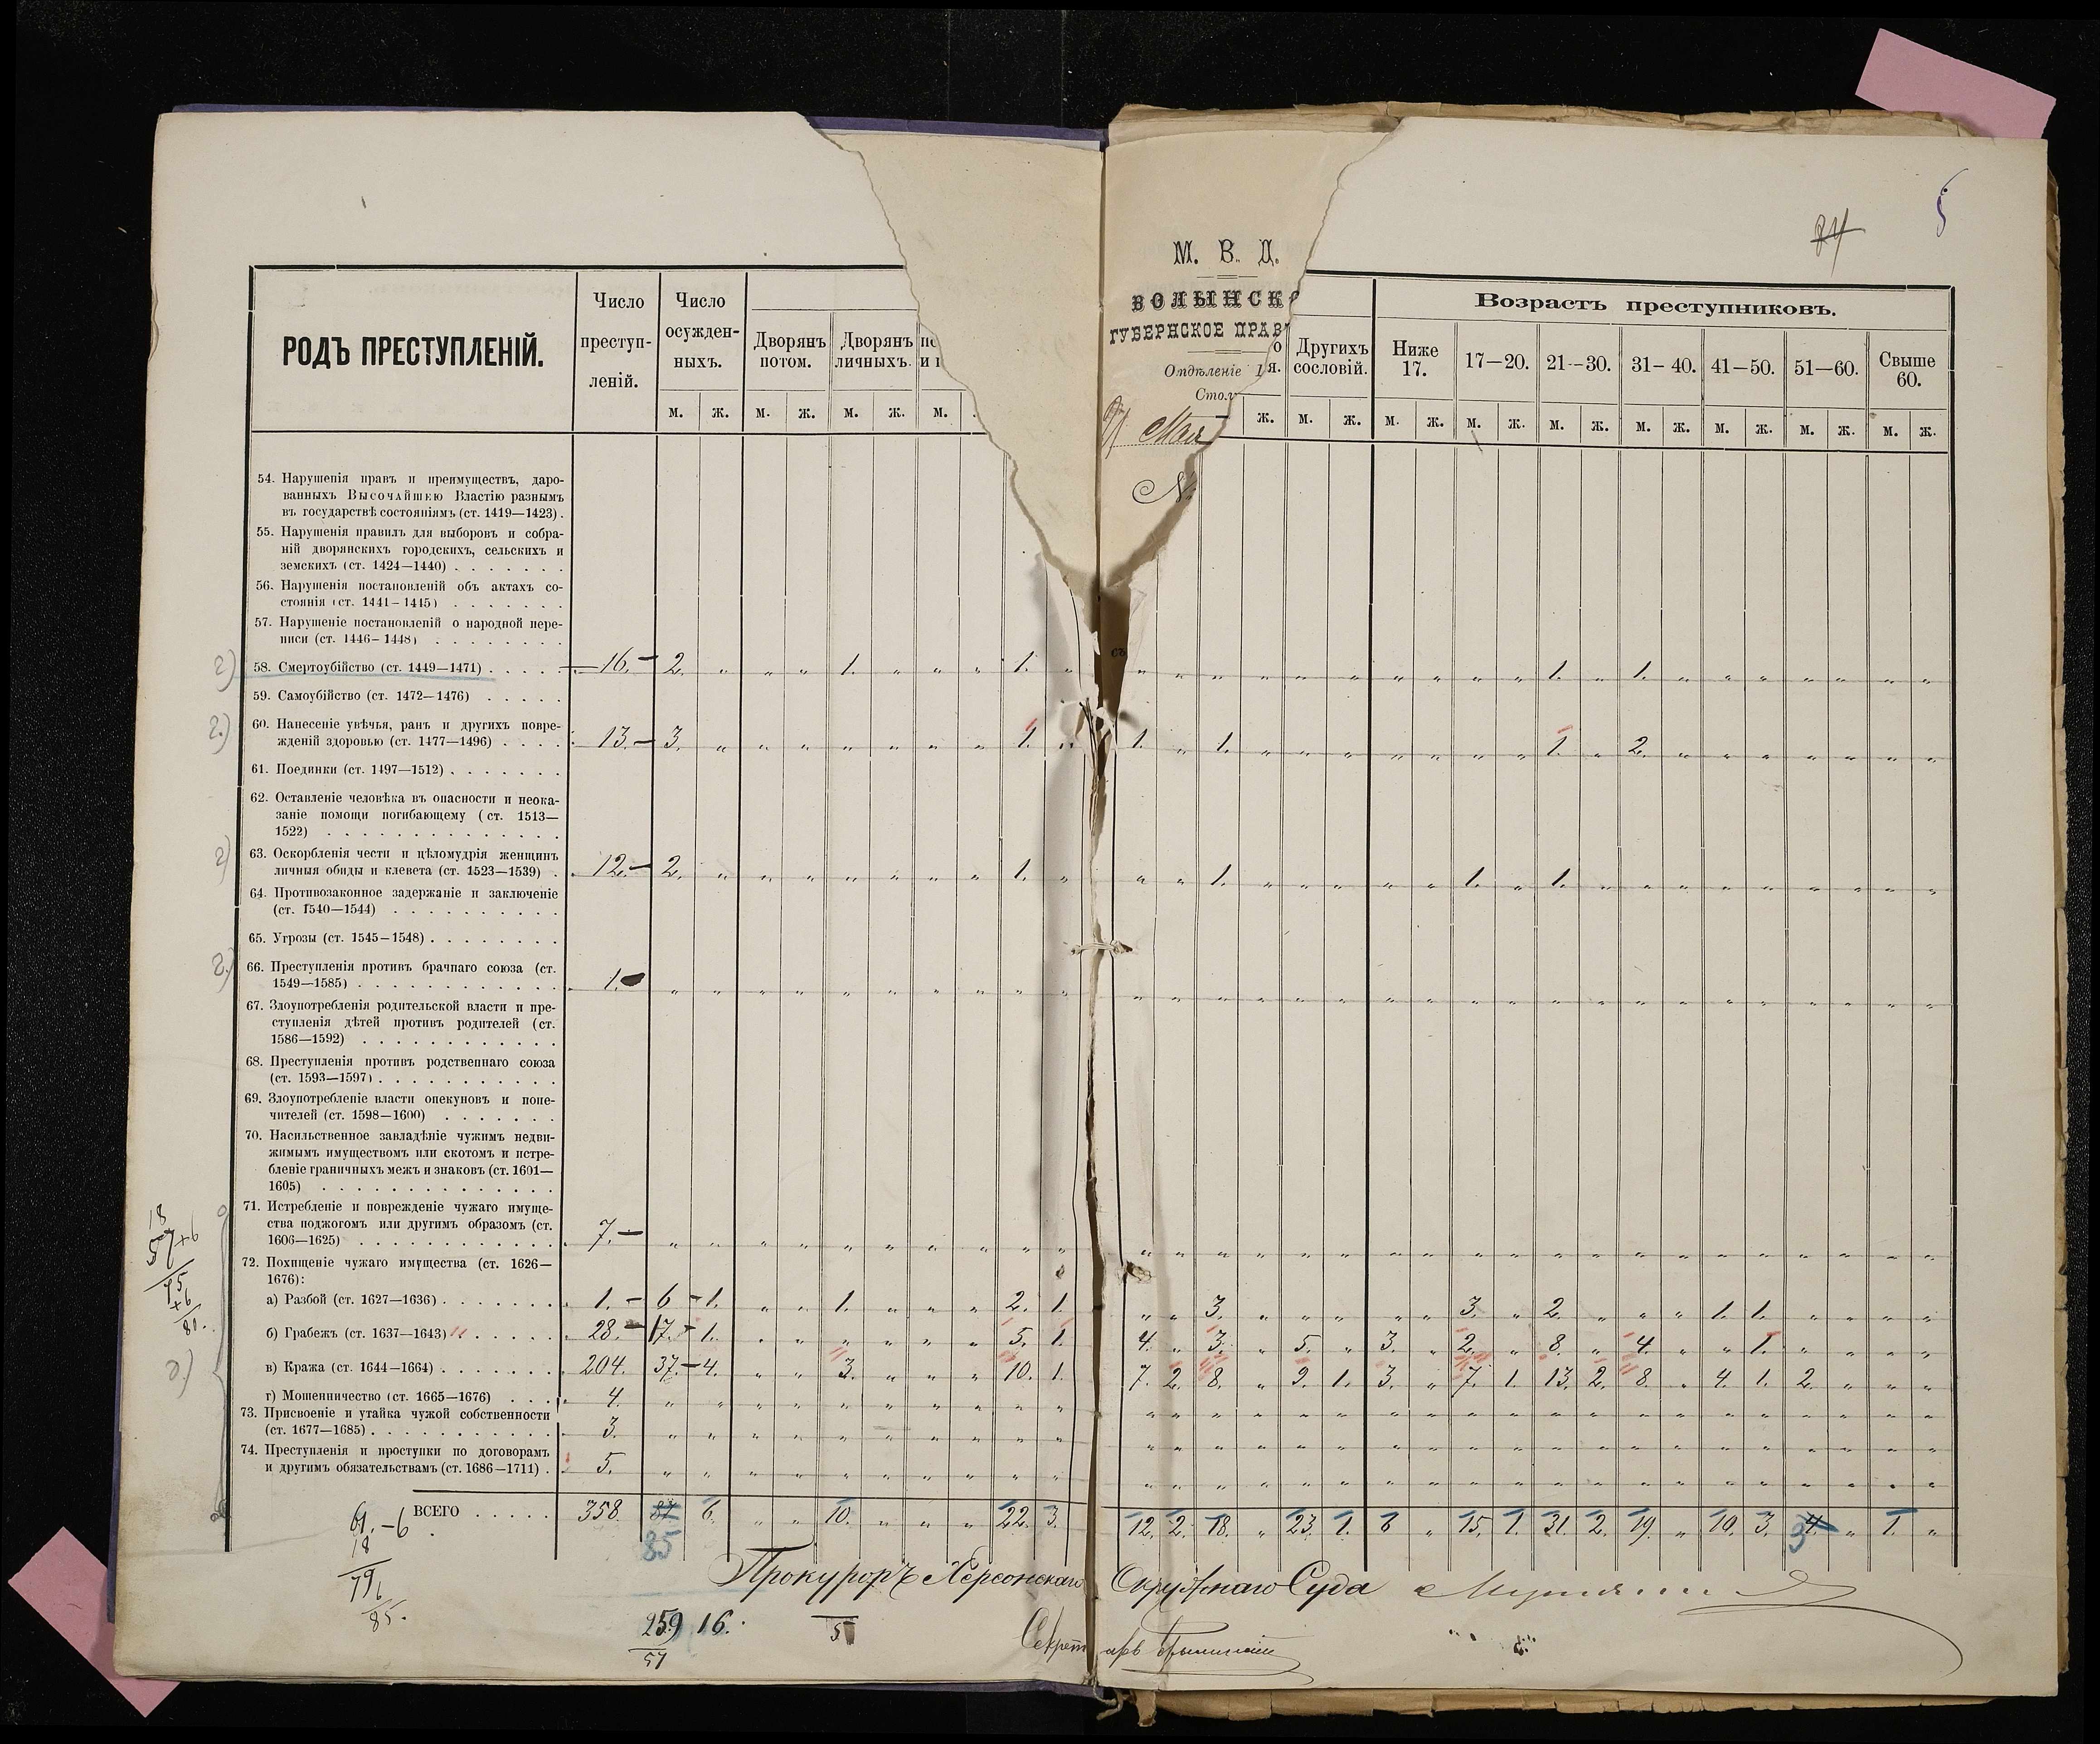 84
5
М. В. Д.
ВОЛЫНСК
ГУБЕРНСКОЕ ПРАВ
Отдѣленіе 1
Стол
Мая
№
РОДЪ ПРЕСТУПЛЕНІЙ.
Число преступ-леній.
Число осужден-ныхъ.
Дворянъ потом.
Дворянъ личныхъ.
Другихъ сословій.
Возрастъ преступниковъ.
Ниже 17.
17—20.
21—30.
31—40.
41—50.
51—60.
Свыше 60.
м. ж. м. ж. м. ж. м.
ж. м. ж. м. ж. м. ж. м. ж. м. ж. м. ж. м. ж. м. ж.
54. Нарушенія правъ и преимуществъ, даро-
ванныхъ Высочайшею Властію разнымъ
въ государствѣ состояніямъ (ст. 1419—1423) .
55. Нарушенія правилъ для выборовъ и собра-
ній дворянскихъ городскихъ, сельскихъ и
земскихъ (ст. 1424—1440) . . . . . . .
56. Нарушенія постановленій объ актахъ со-
стоянія (ст. 1441—1445) . . . . . . .
57. Нарушеніе постановленій о народной пере-
писи (ст. 1446—1448) . . . . . . .
г) 58. Смертоубійство (ст. 1449—1471) . . . . 16. — 2. „ „ „ 1. „ „ „ 1. „ „ „ „ „ „ „ „ „ „ „ „ 1. „ 1. „ „ „ „ „ „ „
59. Самоубійство (ст. 1472—1476) . . . . .
г.) 60. Нанесеніе увѣчья, ранъ и другихъ повре-
жденій здоровью (ст. 1477—1496) . . . . 13. — 3. „ „ „ „ „ „ „ 1. „ 1. „ 1. „ „ „ „ „ „ „ „ 1. „ 2. „ „ „ „ „ „ „
61. Поединки (ст. 1497—1512) . . . . . . .
62. Оставленіе человѣка въ опасности и неока-
заніе помощи погибающему (ст. 1513—
1522) . . . . . . . . . . . . . .
г) 63. Оскорбленія чести и цѣломудрія женщинъ
личныя обиды и клевета (ст. 1523—1539) . 12. — 2. „ „ „ „ „ „ „ 1. „ „ „ 1. „ „ „ „ „ 1. „ 1. „ „ „ „ „ „ „ „ „
64. Противозаконное задержаніе и заключеніе
(ст. 1540—1544) . . . . . . . . . .
65. Угрозы (ст. 1545—1548) . . . . . . . .
г.) 66. Преступленія противъ брачнаго союза (ст.
1549—1585) . . . . . . . . . . . . 1.
67. Злоупотребленія родительской власти и пре-
ступленія дѣтей противъ родителей (ст.
1586—1592) . . . . . . . . . . . .
68. Преступленія противъ родственнаго союза
(ст. 1593—1597) . . . . . . . . . . .
69. Злоупотребленіе власти опекуновъ и попе-
чителей (ст. 1598—1600) . . . . . . .
70. Насильственное завладѣніе чужимъ недви-
жимымъ имуществомъ или скотомъ и истре-
бленіе граничныхъ межъ и знаковъ (ст. 1601—
1605) . . . . . . . . . . . . . .
71. Истребленіе и поврежденіе чужаго имуще-
ства поджогомъ или другимъ образомъ (ст.
1606—1625) . . . . . . . . . . . . 7. —
72. Похищеніе чужаго имущества (ст. 1626—
1676):
а) Разбой (ст. 1627—1636) . . . . . . . 1. — 6 — 1. „ „ 1. „ „ „ 2. 1. „ „ 3. „ „ „ „ „ 3. „ 2. „ „ „ 1. 1. „ „ „ „
б) Грабежъ (ст. 1637—1643) . . . . . 28. — 17. — 1. „ „ „ „ „ „ 5. 1. 4. „ 3. „ 5. „ 3. „ 2. „ 8. „ 4. „ „ 1. „ „ „ „
в) Кража (ст. 1644—1664) . . . . . . . 204. 37. — 4. „ „ 3. „ „ „ 10. 1. 7. 2. 8. „ 9. 1. 3. „ 7. 1. 13. 2. 8. „ 4. 1. 2. „ „ „
г) Мошенничество (ст. 1665—1676) . . . 4.
73. Присвоеніе и утайка чужой собственности
(ст. 1677—1685) . . . . . . . . . . . 3.
74. Преступленія и проступки по договорамъ
и другимъ обязательствамъ (ст. 1686—1711) . 5.
ВСЕГО . . . . . 358. 87 6. „ „ 10. „ „ „ 22. 3. 12. 2. 18. „ 23. 1. 8 „ 15. 1. 31. 2. 19. „ 10. 3. 4. „ 1. „
85
3
18
57+6
75
+6
81.
г.)
61.—6
18
79
6
85.
Прокуроръ Херсонскаго Окружнаго Суда
259 16.
57
5
Секретарь